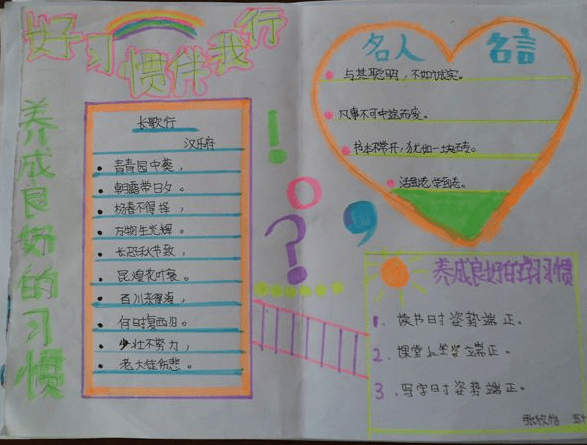 好习惯伴我行
养成良好的习惯
长歌行
汉乐府
青青园中葵，
朝露待日夕。
杨春不得择，
万物生光辉。
长恐秋节致，
昆煌花叶衰。
百川东得海，
何日时复西归。
少壮不努力，
老大徒伤悲。
！
？
，
名人 名言
与其聪明，不如诚实。
凡事不可中途而废。
书本不常开，犹如一块砖。
活到老，学到老。
养成良好的学习惯
1、读书时姿势端正。
2、课堂上坐姿立端正。
3、写字时姿势端正。